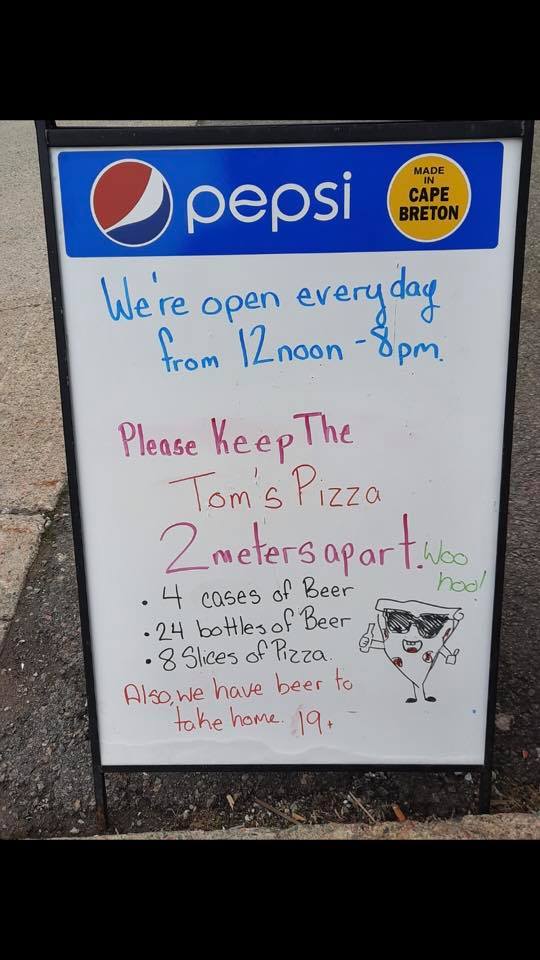 pepsi
MADE
IN
CAPE
BRETON
We're open everyday
from 12noon - 8pm.
Please Keep The
Tom's Pizza
2 meters apart.
Woo
hoo!
• 4 cases of Beer
• 24 bottles of Beer
• 8 Slices of Pizza.
Also, we have beer to
take home. 19+